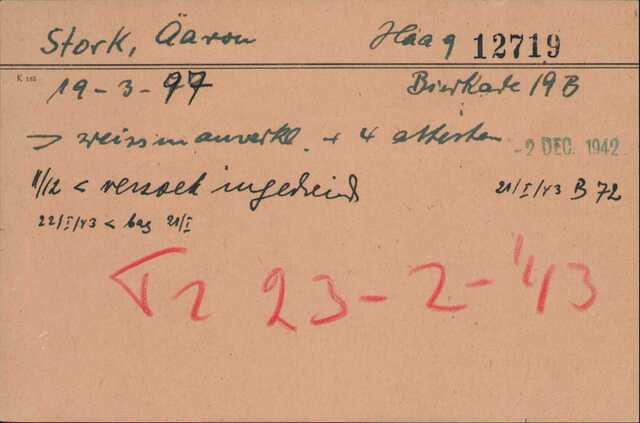 Stork, Äaron Haag 12719
K 165
19-3-97 Bierkade 19B
→ weissmanverkl. + 4 attesten -2 DEC. 1942
11/12 < verzoek ingediend 21/I/43 B 72
22/I/43 < bag 21/I
Tr 23-2-'43